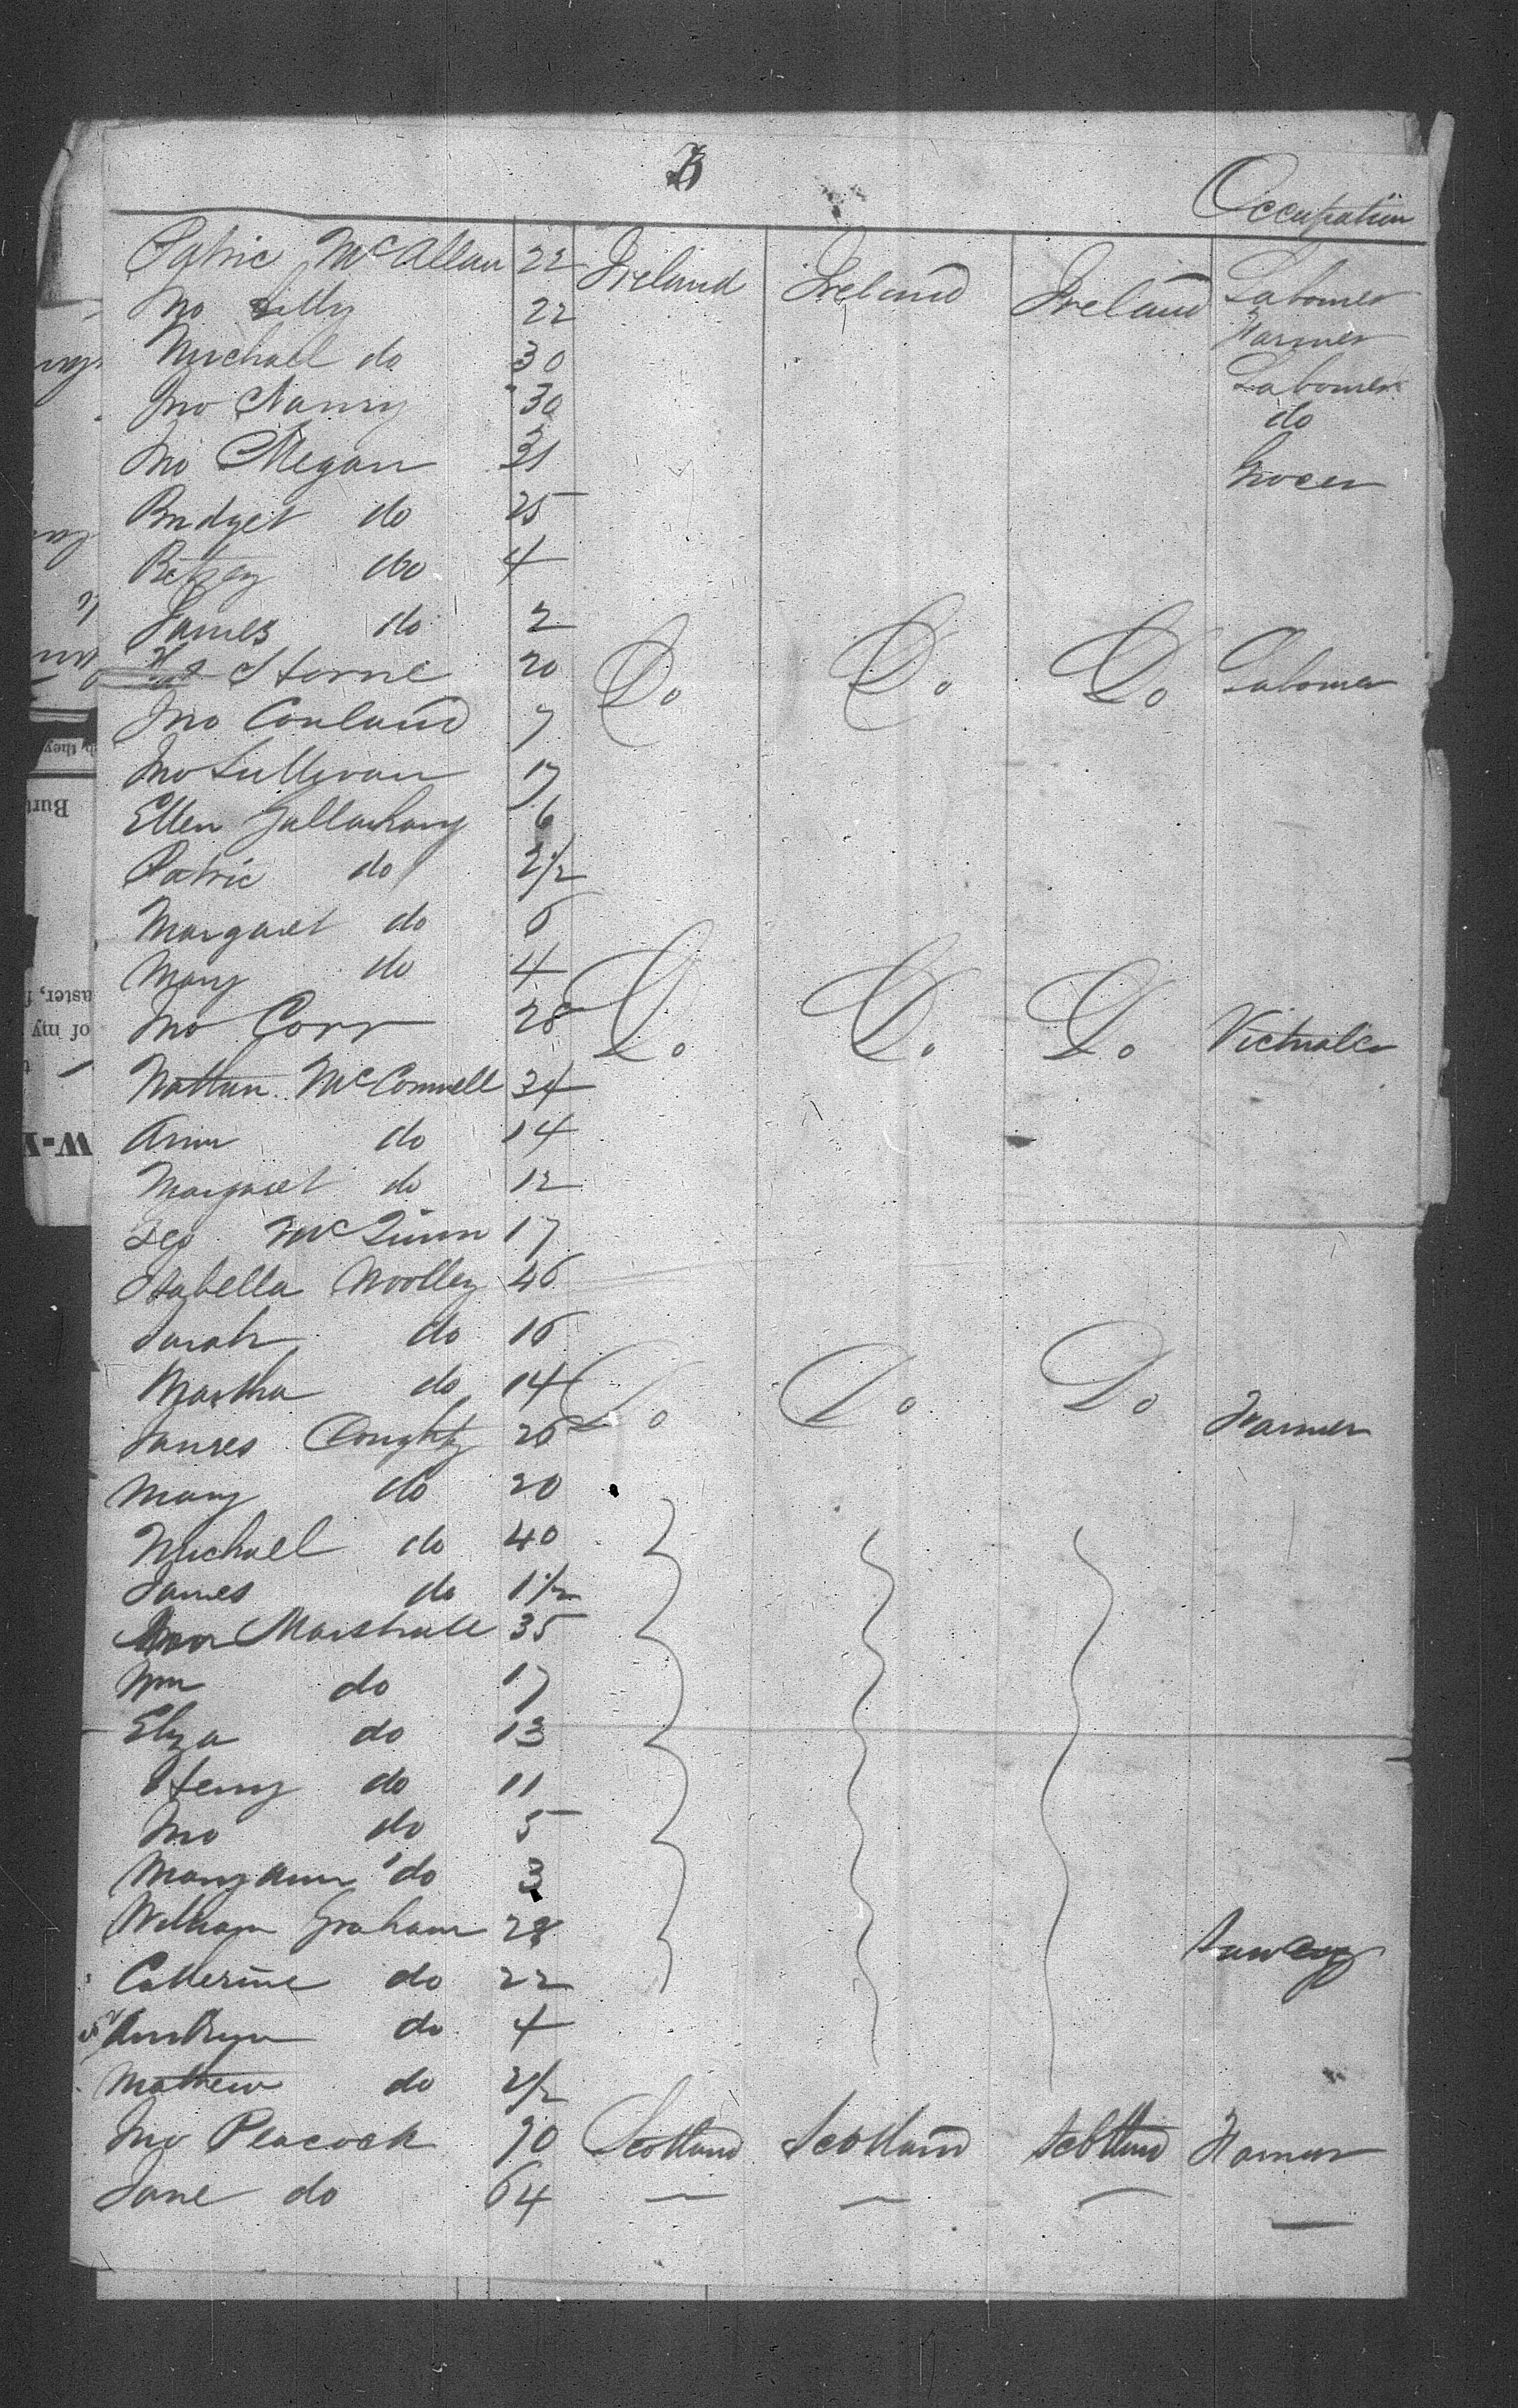 Occupation
Patric McAllan 22 Ireland Ireland Ireland Labourer
Jno Lilly 22 Farmer
Michael do 30 Labourer
Jno Nancy 30 do
Jno Megan 31 Grocer
Bridget do 25
Betsey do 4
James do 2
Storne 20 Do Do Do Labourer
Jno Conland 7
Jno Sullivan 17
Ellen Gallachary 6
Patric do 2½
Margaret do 6
Mary do 4
Jno Corr 28 Do Do Do Victualer
Nathan McConnell 34
Ann do 14
Margaret do 12
Geo McQuinn 17
Isabella Woolley 46
Sarah do 16
Martha do 14 Do Do Do
James Coughty 26 Farmer
Mary do 20
Michael do 40
James do 1½
Marshall 35
Wm do 17
Eliza do 13
Henry do 11
Jno do 5
Mary Ann do 3
William Graham 28
Catherine do 22
do 4
Mathew do 2½
Jno Peacock 70 Scotland Scotland Scotland Farmer
Jane do 64
they
Burt
aster, f
of my
W-Y